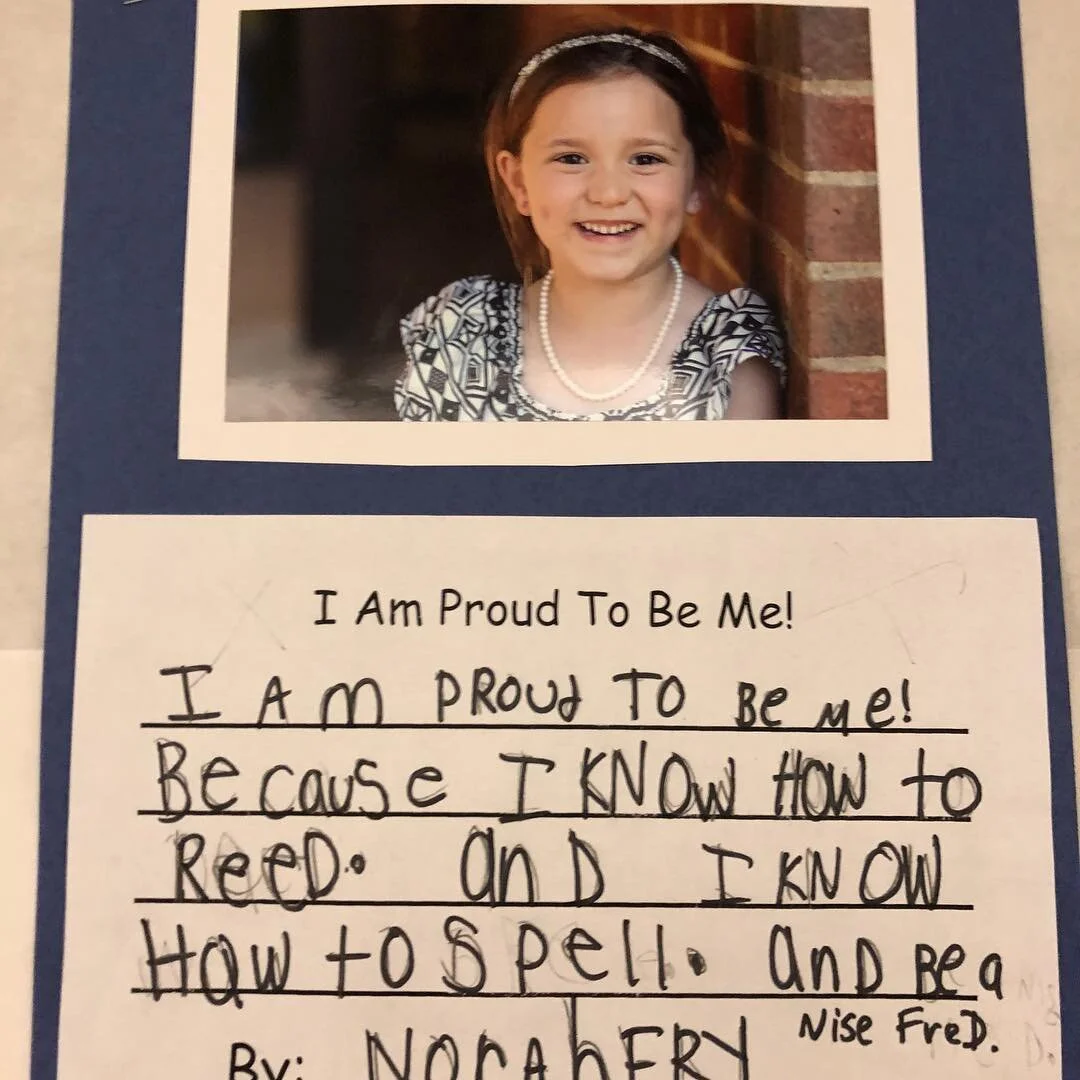 I Am Proud To Be Me!
I Am PROUd TO Be me!
Because I KNOw HOW to
ReeD. anD I KNOW
How to Spell. anD Be a
Nise FreD.
By: NorahFRY